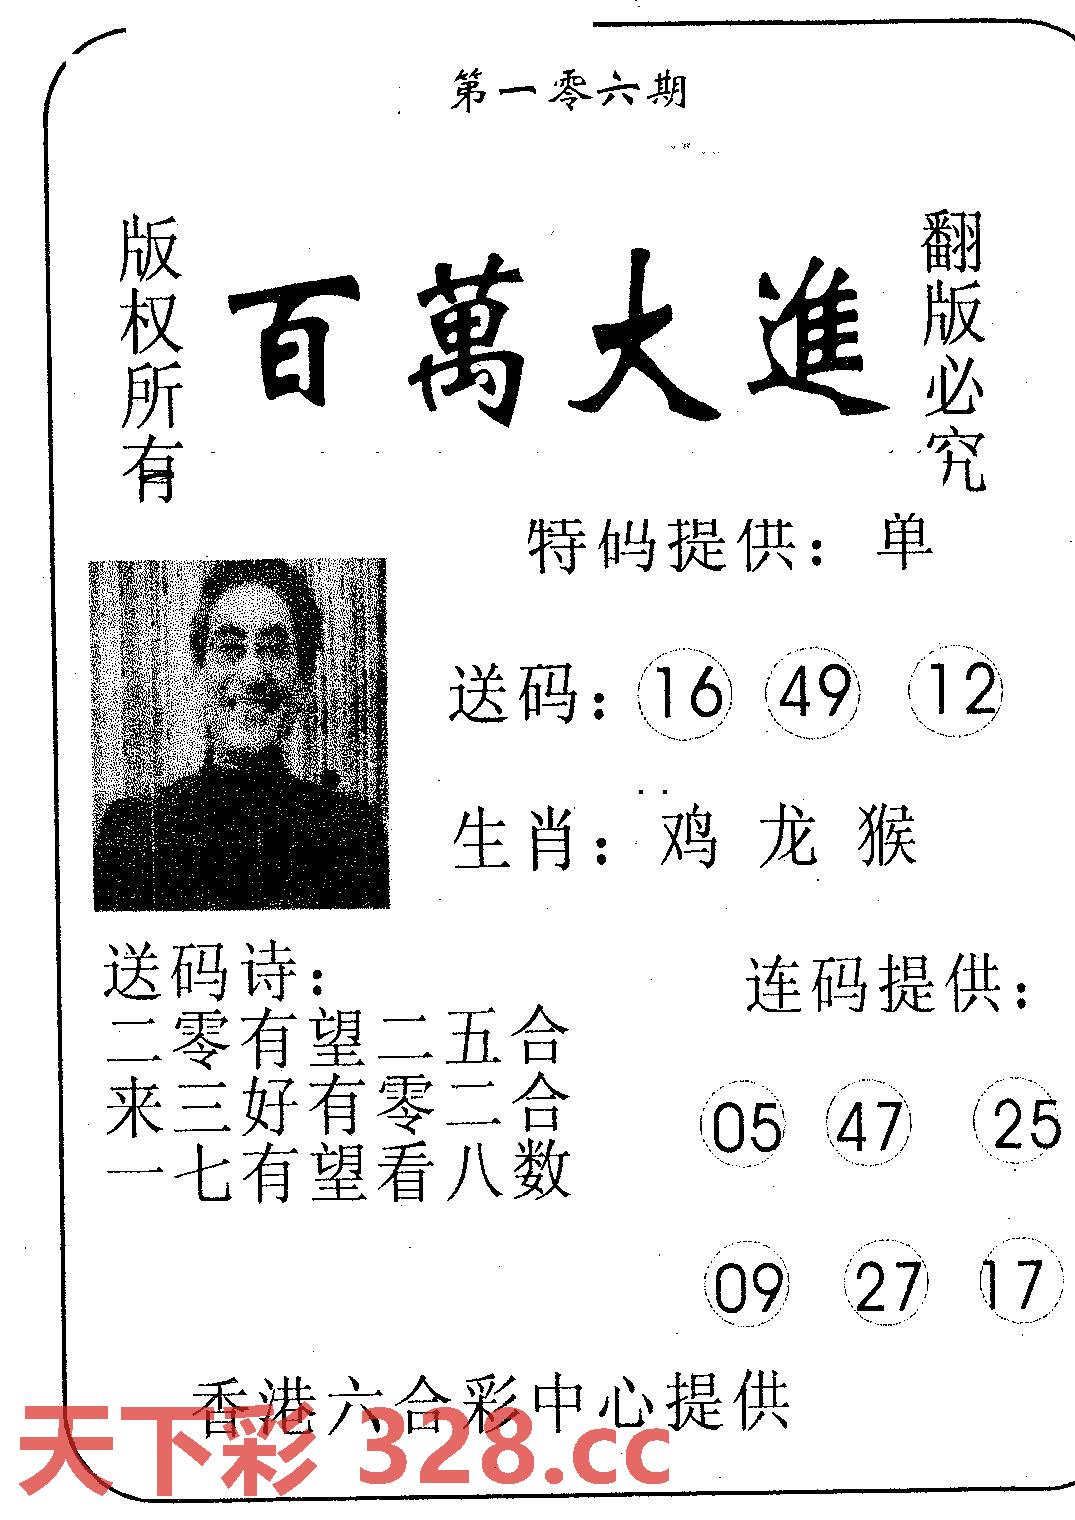 第一零六期
版权所有
百萬大進
翻版必究
特码提供：单
送码：16 49 12
生肖：鸡 龙 猴
送码诗：
二零有望二五合
来三好有零二合
一七有望看八数
连码提供：
05 47 25
09 27 17
香港六合彩中心提供
天下彩 328.cc